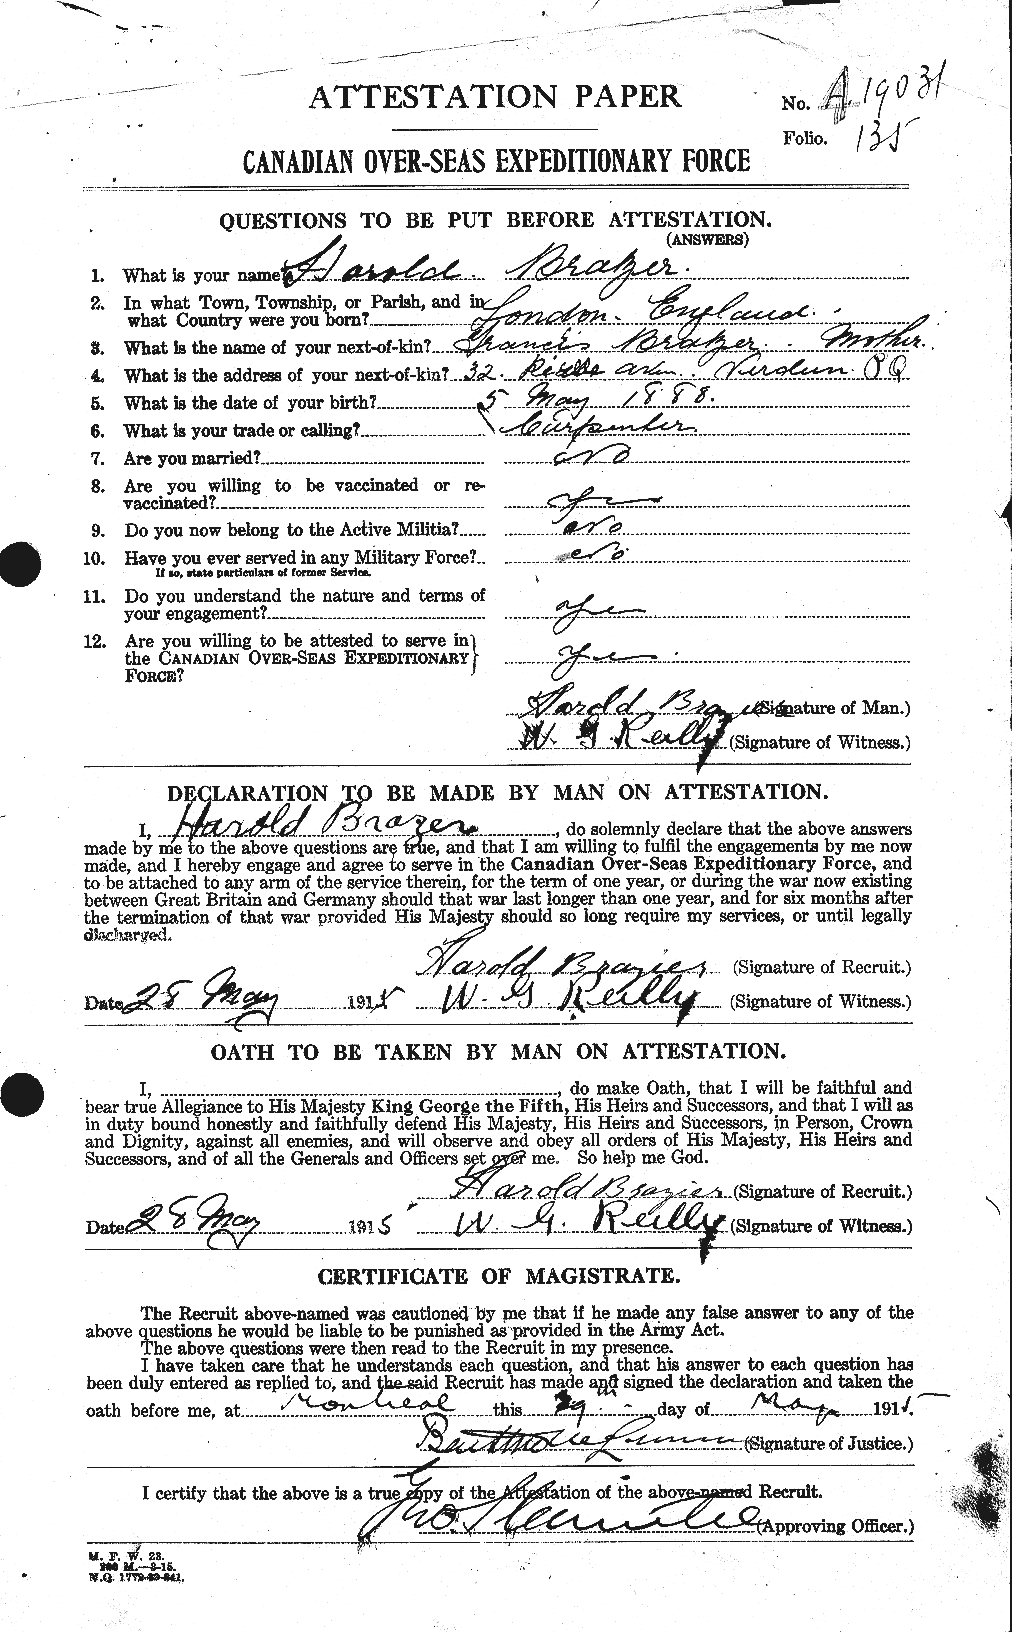 ATTESTATION PAPER
No. A 19031
Folio. 135
CANADIAN OVER-SEAS EXPEDITIONARY FORCE
QUESTIONS TO BE PUT BEFORE ATTESTATION.
(ANSWERS)
1. What is your name? Harold Brazer.
2. In what Town, Township, or Parish, and in
what Country were you born? London. England.
3. What is the name of your next-of-kin? Francis Brazer. Mother.
4. What is the address of your next-of-kin? 32. Verdun P Q
5. What is the date of your birth? 5 May 1888.
6. What is your trade or calling? Carpenter
7. Are you married? No
8. Are you willing to be vaccinated or re-
vaccinated? Yes
9. Do you now belong to the Active Militia? No
10. Have you ever served in any Military Force? No
If so, state particulars of former Service.
11. Do you understand the nature and terms of
your engagement? Yes
12. Are you willing to be attested to serve in
the CANADIAN OVER-SEAS EXPEDITIONARY
FORCE? Yes
Harold Brazier (Signature of Man.)
W. G Reilly (Signature of Witness.)
DECLARATION TO BE MADE BY MAN ON ATTESTATION.
I, Harold Brazer, do solemnly declare that the above answers
made by me to the above questions are true, and that I am willing to fulfil the engagements by me now
made, and I hereby engage and agree to serve in the Canadian Over-Seas Expeditionary Force, and
to be attached to any arm of the service therein, for the term of one year, or during the war now existing
between Great Britain and Germany should that war last longer than one year, and for six months after
the termination of that war provided His Majesty should so long require my services, or until legally
discharged.
Harold Brazier (Signature of Recruit.)
Date 28 May 1915 W. G Reilly (Signature of Witness.)
OATH TO BE TAKEN BY MAN ON ATTESTATION.
I, , do make Oath, that I will be faithful and
bear true Allegiance to His Majesty King George the Fifth, His Heirs and Successors, and that I will as
in duty bound honestly and faithfully defend His Majesty, His Heirs and Successors, in Person, Crown
and Dignity, against all enemies, and will observe and obey all orders of His Majesty, His Heirs and
Successors, and of all the Generals and Officers set over me. So help me God.
Harold Brazier (Signature of Recruit.)
Date 28 May 1915 W. G. Reilly (Signature of Witness.)
CERTIFICATE OF MAGISTRATE.
The Recruit above-named was cautioned by me that if he made any false answer to any of the
above questions he would be liable to be punished as provided in the Army Act.
The above questions were then read to the Recruit in my presence.
I have taken care that he understands each question, and that his answer to each question has
been duly entered as replied to, and the said Recruit has made and signed the declaration and taken the
oath before me, at Montreal this 29th day of May 1915.
(Signature of Justice.)
I certify that the above is a true copy of the Attestation of the above-named Recruit.
(Approving Officer.)
M. F. W. 23.
200 M.—3-15.